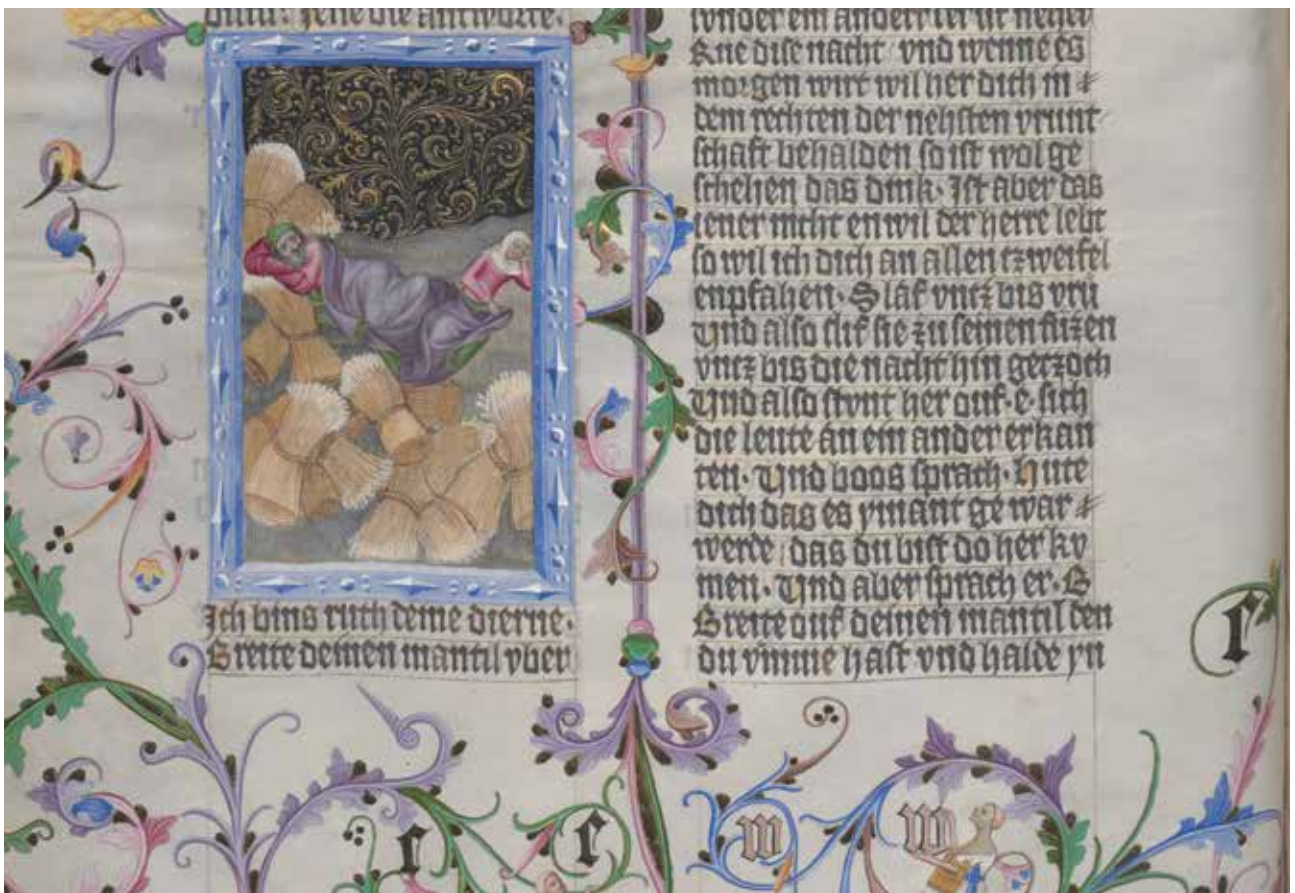 jene die antworte.
Ich bins ruth deine dierne.
Breite deinen mantil vber
ander
Rue dise nacht vnd wenne es
morgen wirt wil her dich in
dem rechten der nehsten vrunt
schaft behalden so ist wol ge
schehen das dink. Ist aber das
iener nicht enwil der herre lebt
so wil ich dich an allen tzweifel
enpfahen. Slaf vntz bis vru
Vnd also slif sie zu seinen fuzen
vntz bis die nacht hin getzoch
Vnd also stvnt her ouf. e. sich
die leute an ein ander erkan
ten. Vnd boos sprach. Hute
dich das es ymant ge war
werde das du bist do her kv
men. Vnd aber sprach er. B
Breite ouf deinen mantil den
du vmme hast vnd halde yn
w
w